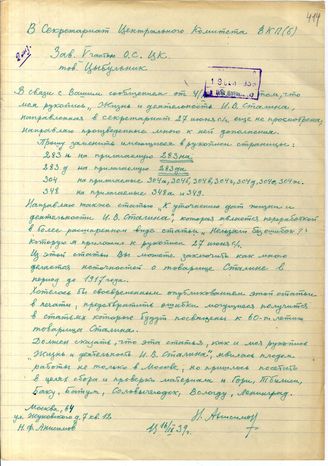 414
В Секретариат Центрального Комитета ВКП(б)
Зав. V частью О.С. ЦК.
тов. Цыбульник
В связи с Вашим сообщением от том, что
моя рукопись „Жизнь и деятельность И.В. Сталина",
направленная в секретариат 27 июня с/г, еще не просмотрена,
направляю произведенные мною к ней дополнения.
Прошу заменить имеющиеся в рукописи страницы:
283 н на прилагаемую 283 нн.
283 д на прилагаемую 283 дн
304 на прилагаемые 304а, 304б, 304в, 304г, 304д, 304е, 304ж.
348 на прилагаемые 348а и 349.
Направляю также статью „К уточнению дат жизни и
деятельности И.В. Сталина", которая является переработкой
в более расширенном виде статьи „Нельзя без ошибок?"
которую я приложил к рукописи 27 июня с/г.
Из этой статьи Вы можете заключить как много
делается неточностей о товарище Сталине в
период до 1917 года.
Хотелось бы своевременным опубликованием этой статьи
в печати, предотвратить ошибки могущие получится
в статьях которые будут посвящены к 60-летию
товарища Сталина.
Должен сказать, что эта статья, как и моя рукопись
„Жизнь и деятельность И.В. Сталина", явилась плодом
работы не только в Москве, но пришлось посетить
в целях сбора и проверки материалов и Гори, Тбилиси,
Баку, Батум, Сольвычегодск, Вологду, Ленинград.
Москва, 64
ул. Жуковского д. 7 кв. 12
Н.Ф. Анисимов
Н. Анисимов
39 г.